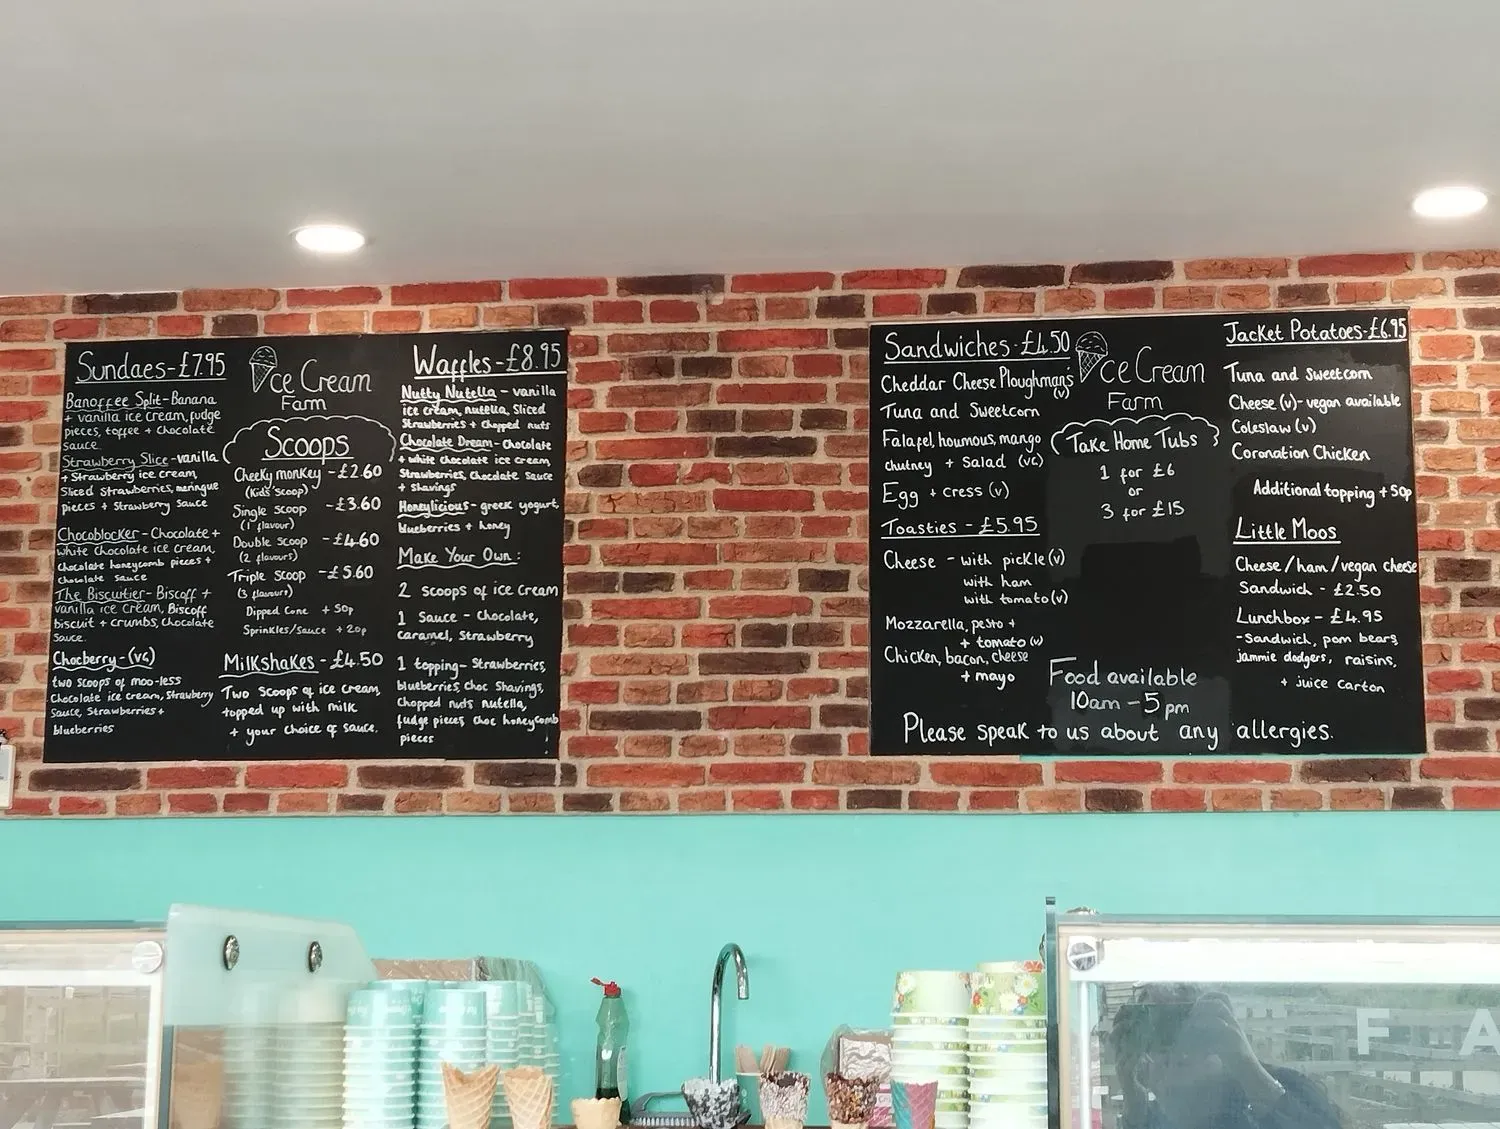 Sundaes-£7.95
Banoffee Split-Banana
+ vanilla ice cream, fudge
pieces, toffee + chocolate
sauce.
Strawberry Slice-vanilla
+ Strawberry ice cream,
Sliced Strawberries, meringue
pieces + Strawberry Sauce
Chocoblocker-Chocolate +
white Chocolate ice cream,
Chocolate honeycomb pieces +
chocolate sauce
The Biscuitier-Biscoff +
vanilla ice cream, Biscoff
biscuit + crumbs, Chocolate
Sauce.
Chocberry-(VG)
two scoops of moo-less
Chocolate ice cream, Strawberry
Sauce, Strawberries +
blueberries
Ice Cream
Farm
Scoops
Cheeky monkey -£2.60
(Kid's Scoop)
Single Scoop -£3.60
(1 flavour)
Double Scoop -£4.60
(2 flavours)
Triple Scoop -£5.60
(3 flavours)
Dipped Cone + 50p
Sprinkles/Sauce + 20p
Milkshakes -£4.50
Two Scoops of ice cream,
topped up with milk
+ your choice of sauce.
Waffles-£8.95
Nutty Nutella - vanilla
ice cream, nutella, Sliced
Strawberries + Chopped nuts
Chocolate Dream-Chocolate
+ white chocolate ice cream
Strawberries, Chocolate Sauce
+ Shavings
Honeylicious - greek yogurt,
blueberries + honey
Make Your Own:
2 scoops of ice cream
1 Sauce - Chocolate,
Caramel, Strawberry
1 topping- Strawberries,
blueberries, Choc Shavings,
Chopped nuts nutella,
fudge pieces choc honeycomb
pieces
Sandwiches-£4.50
Cheddar Cheese Ploughman's
(v)
Tuna and Sweetcorn
Falafel, houmous, mango
chutney + Salad (VG)
Egg + cress (v)
Toasties - £5.95
Cheese - with pickle (v)
with ham
with tomato (v)
Mozzarella, pesto +
+ tomato (v)
Chicken, bacon, cheese
+ mayo
Ice Cream
Farm
Take Home Tubs
1 for £6
or
3 for £15
Food available
10am - 5pm
Jacket Potatoes-£6.95
Tuna and Sweetcorn
Cheese (v)- vegan available
Coleslaw (v)
Coronation Chicken
Additional topping + 50p
Little Moos
Cheese/ham/vegan cheese
Sandwich - £2.50
Lunchbox - £4.95
-Sandwich, pom bears,
jammie dodgers, raisins,
+ juice carton
Please speak to us about any allergies.
F A